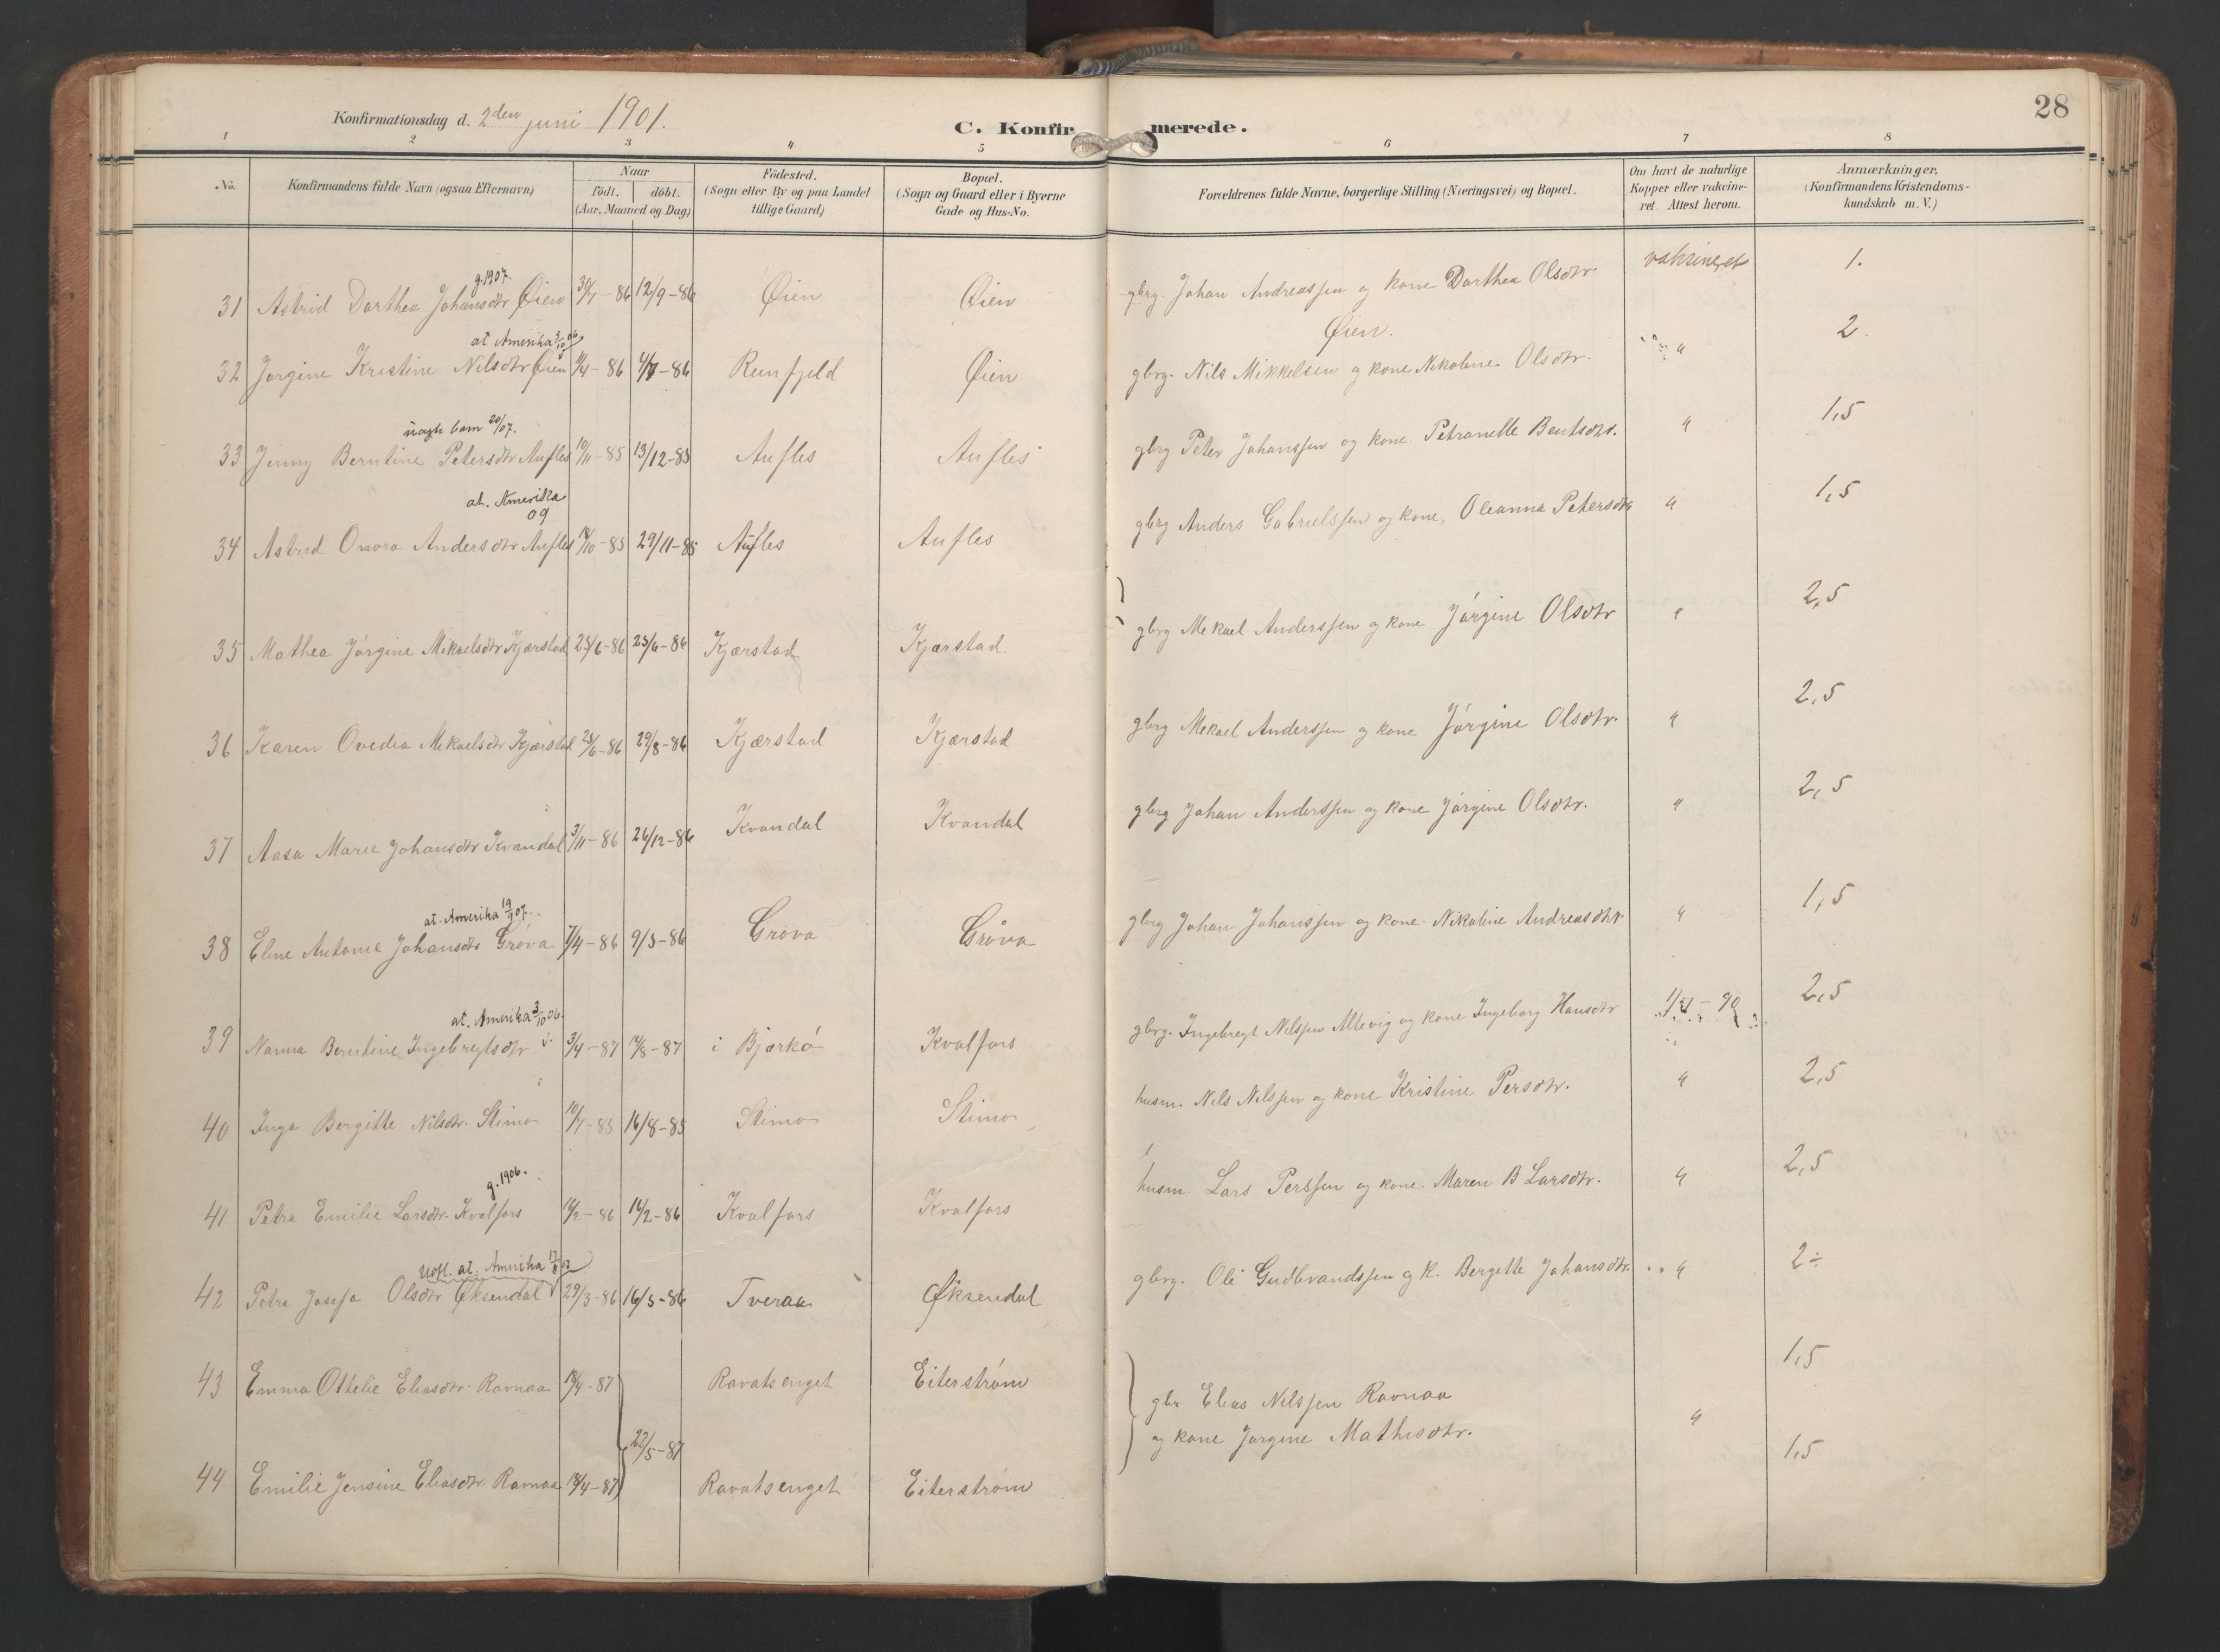 28
Konfirmationsdag d. 2den juni 1901.
C. Konfirmerede.
1 2 3 4 5 6 7 8
No. Konfirmandens fulde Navn (ogsaa Efternavn) Naar födt. döbt. (Aar, Maaned og Dag) Födested. (Sogn eller By og paa Landet tillige Gaard) Bopæl. (Sogn og Gaard eller i Byerne Gade og Hus-No. Forældrenes fulde Navne, borgerlige Stilling (Næringsvei) og Bopæl. Om havt de naturlige Kopper eller vakcineret. Attest herom. Anmærkninger. (Konfirmandens Kristendomskundskab m. V.)
g. 1907.
31 Astrid Dorthea Johansdtr Øien 30/7-86 12/9-86 Øien Øien gbrg. Johan Andreassen og kone Dorthea Olsdtr. Øien. vaksineret 1.
at Amerika 3/10 06
32 Jørgine Kristine Nilsdtr Øien 4/4-86 4/7-86 Reinfjeld Øien gbrg. Nils Mikkelsen og kone Nikoline Olsdtr. " 2.
barn 20/07.
33 Jenny Berntine Petersdtr Aufles 10/11-85 13/12-85 Aufles Aufles gbrg Peter Johanssen og kone Petranelle Bentsdtr. " 1,5
at. Amerika 09
34 Astrid Onora Andersdtr Aufles 18/10-85 29/11-85 Aufles Aufles gbrg Anders Gabrielssen og kone Oleanna Petersdtr " 1,5
35 Mathea Jørgine Mikaelsdtr Kjærstad 23/6-86 25/6-86 Kjærstad Kjærstad gbrg Mekael Anderssen og kone Jørgine Olsdtr " 2,5
36 Karen Ovedia Mikaelsdtr Kjærstad 23/6-86 29/8-86 Kjærstad Kjærstad gbrg Mekael Anderssen og kone Jørgine Olsdtr. " 2,5
37 Aasa Marie Johansdtr Kvandal 3/11-86 26/12-86 Kvandal Kvandal gbrg Johan Anderssen og kone Jørgine Olsdtr. " 2,5
at. Amerika 19/9 07.
38 Eline Antonie Johansdtr Grøva 7/4-86 9/5-86 Grøva Grøva gbrg Johan Johanssen og kone Nikoline Andreasdtr. " 1,5
at. Amerika 3/10 06.
39 Nanna Berntine Ingebregtsdtr 3/4-87 14/8-87 i Bjarkö Kvalfors gbrg. Ingebregt Nilssen Altevig og kone Ingeborg Hansdtr 90 2,5
40 Inga Bergitte Nilsdtr. Stimo 10/7-85 16/8-85 Stimo Stimo husm. Nils Nilssen og kone Kristine Persdtr. " 2,5
g. 1906.
41 Petra Emilie Larsdtr. Kvalfors 14/2-86 14/2-86 Kvalfors Kvalfors husm. Lars Perssen og kone Maren B Larsdtr. " 2,5
Udfl. at. Amerika 17/8 02
42 Petra Josefa Olsdtr Øksendal 29/3-86 16/5-86 Tveraa Øksendal gbrg. Ole Gudbrandssen og k. Bergitte Johansdtr. " 2÷
43 Emma Othelie Eliasdtr. Ravnaa 18/4-87 Ravatsenget Eiterstrøm gbr Elias Nilssen Ravnaa 1,5
22/5-87 og kone Jørgine Mathisdtr. "
44 Emilie Jensine Eliasdtr. Ravnaa 18/4-87 Ravatsenget Eiterstrøm 1,5